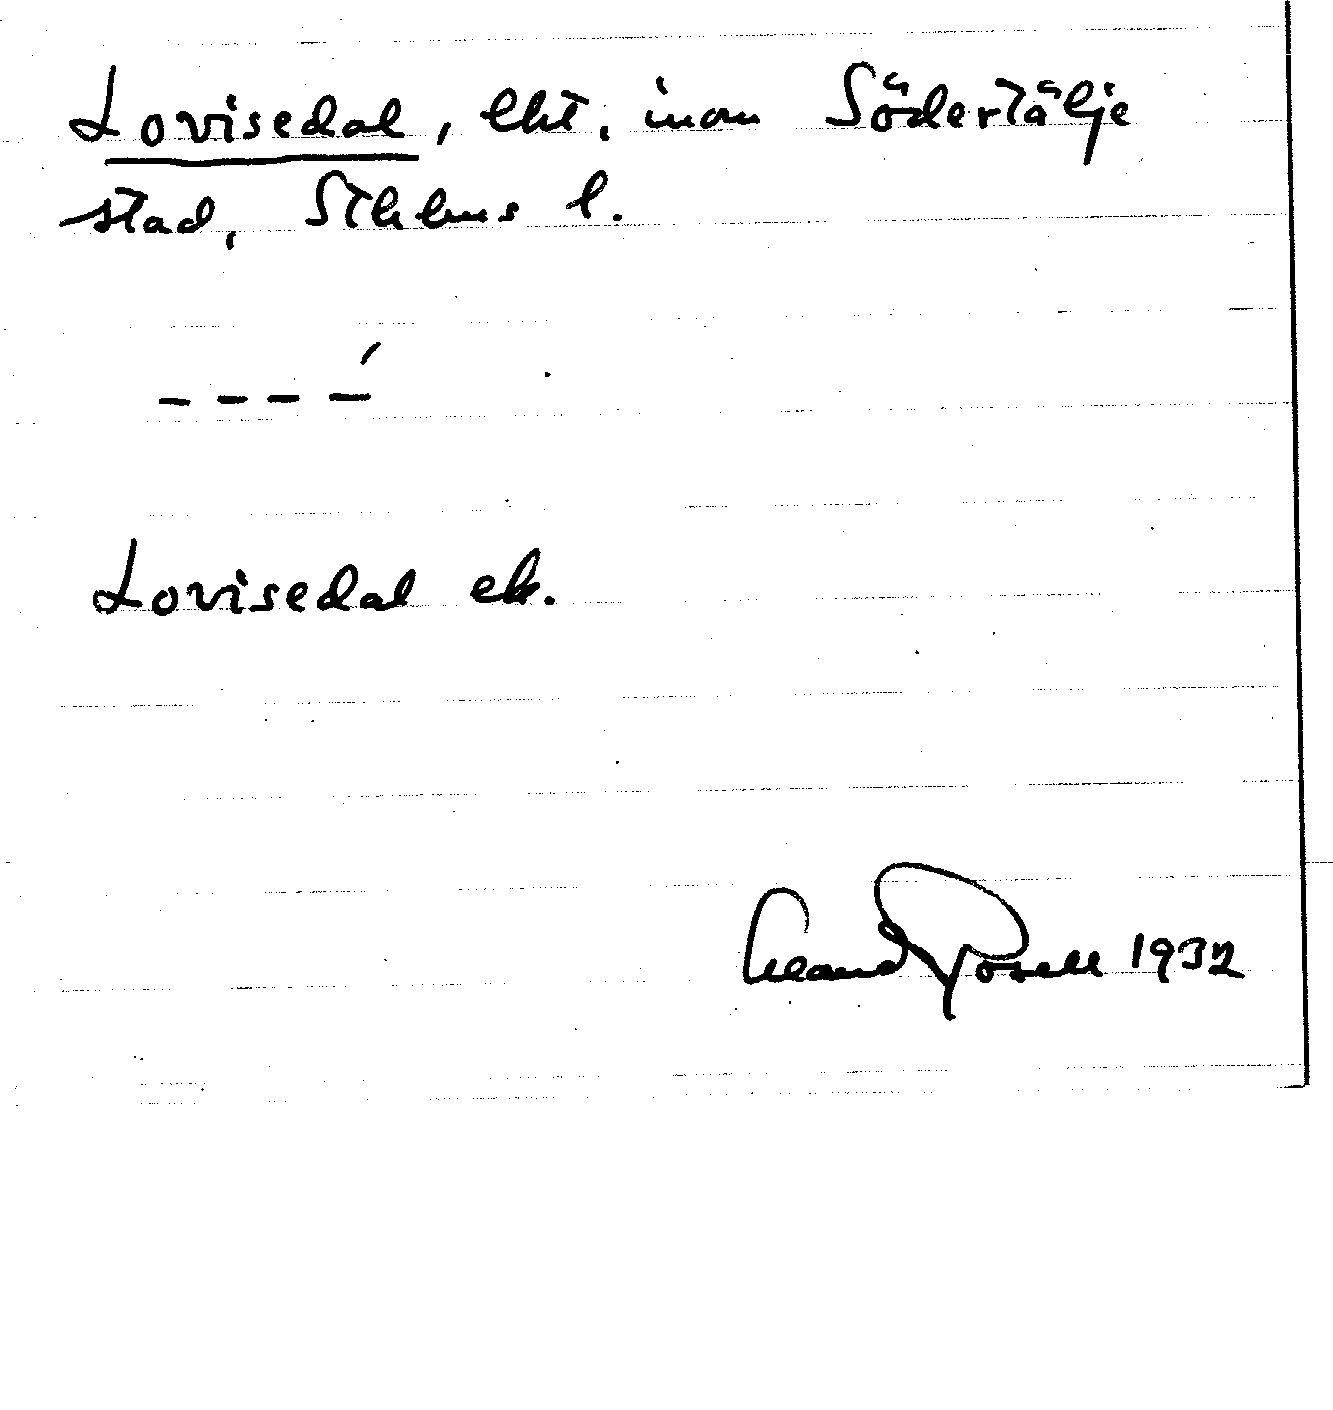 Lovisedal, lht. inom Södertälje
stad, Sthlms l.
- - - -́
Lovisedal ek.
Rosell 1932